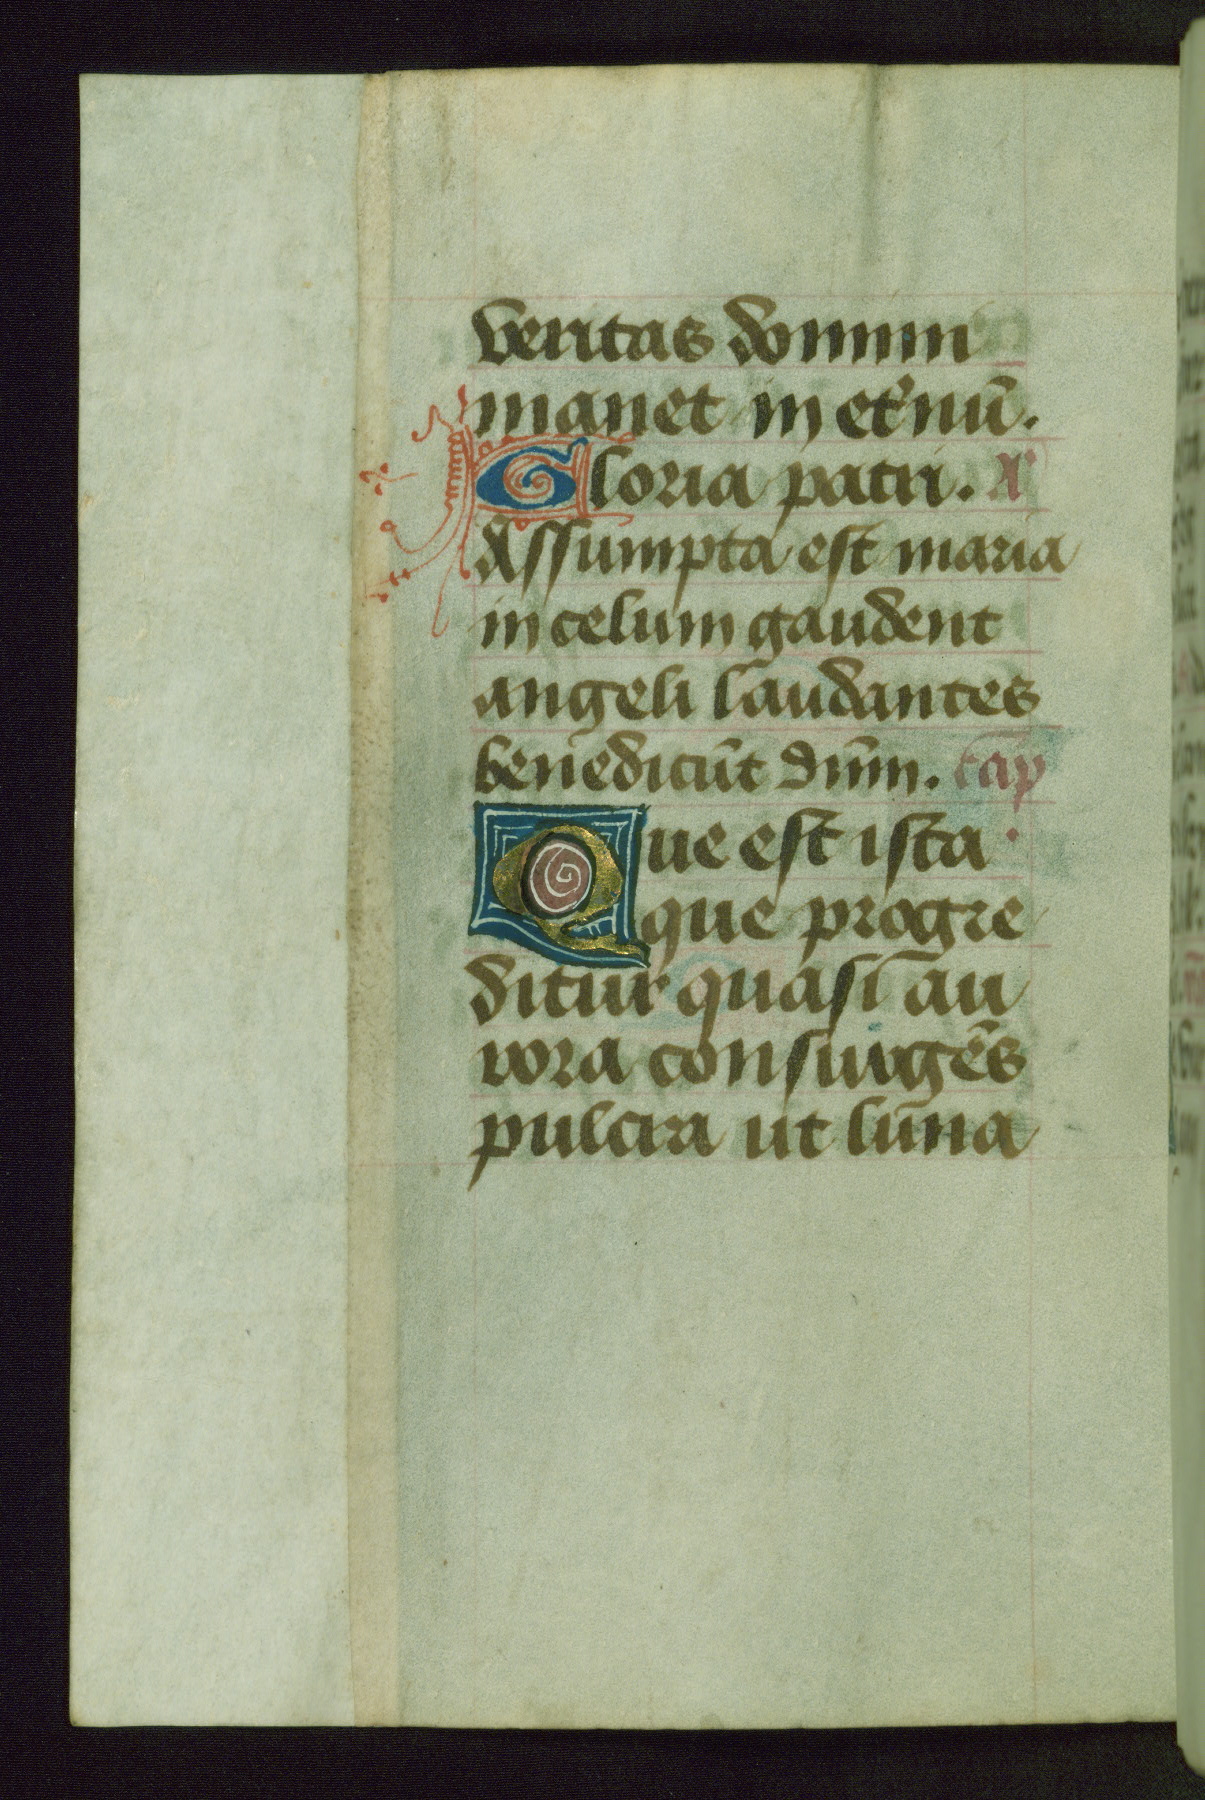 veritas domini
manet in et̉nū.
Gloria patri. A̾
Assumpta est maria
in celum gaudent
angeli laudantes
benedicūt dnm̄. cap̄
Que est ista
que progre
ditur quasi au
rora consurgēs
pulcra ut luna